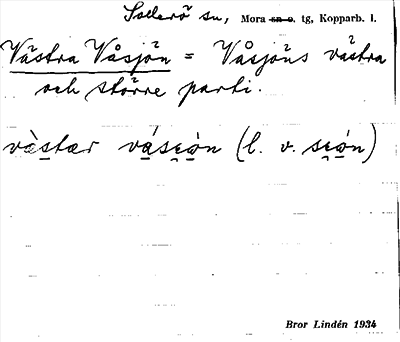 Sollerö sn, Mora sn o. tg, Kopparb. l.
Västra Våsjön = Våsjöns västra
och större parti.
vàstær vásɛón (l. v. sɛón)
Bror Lindén 1934